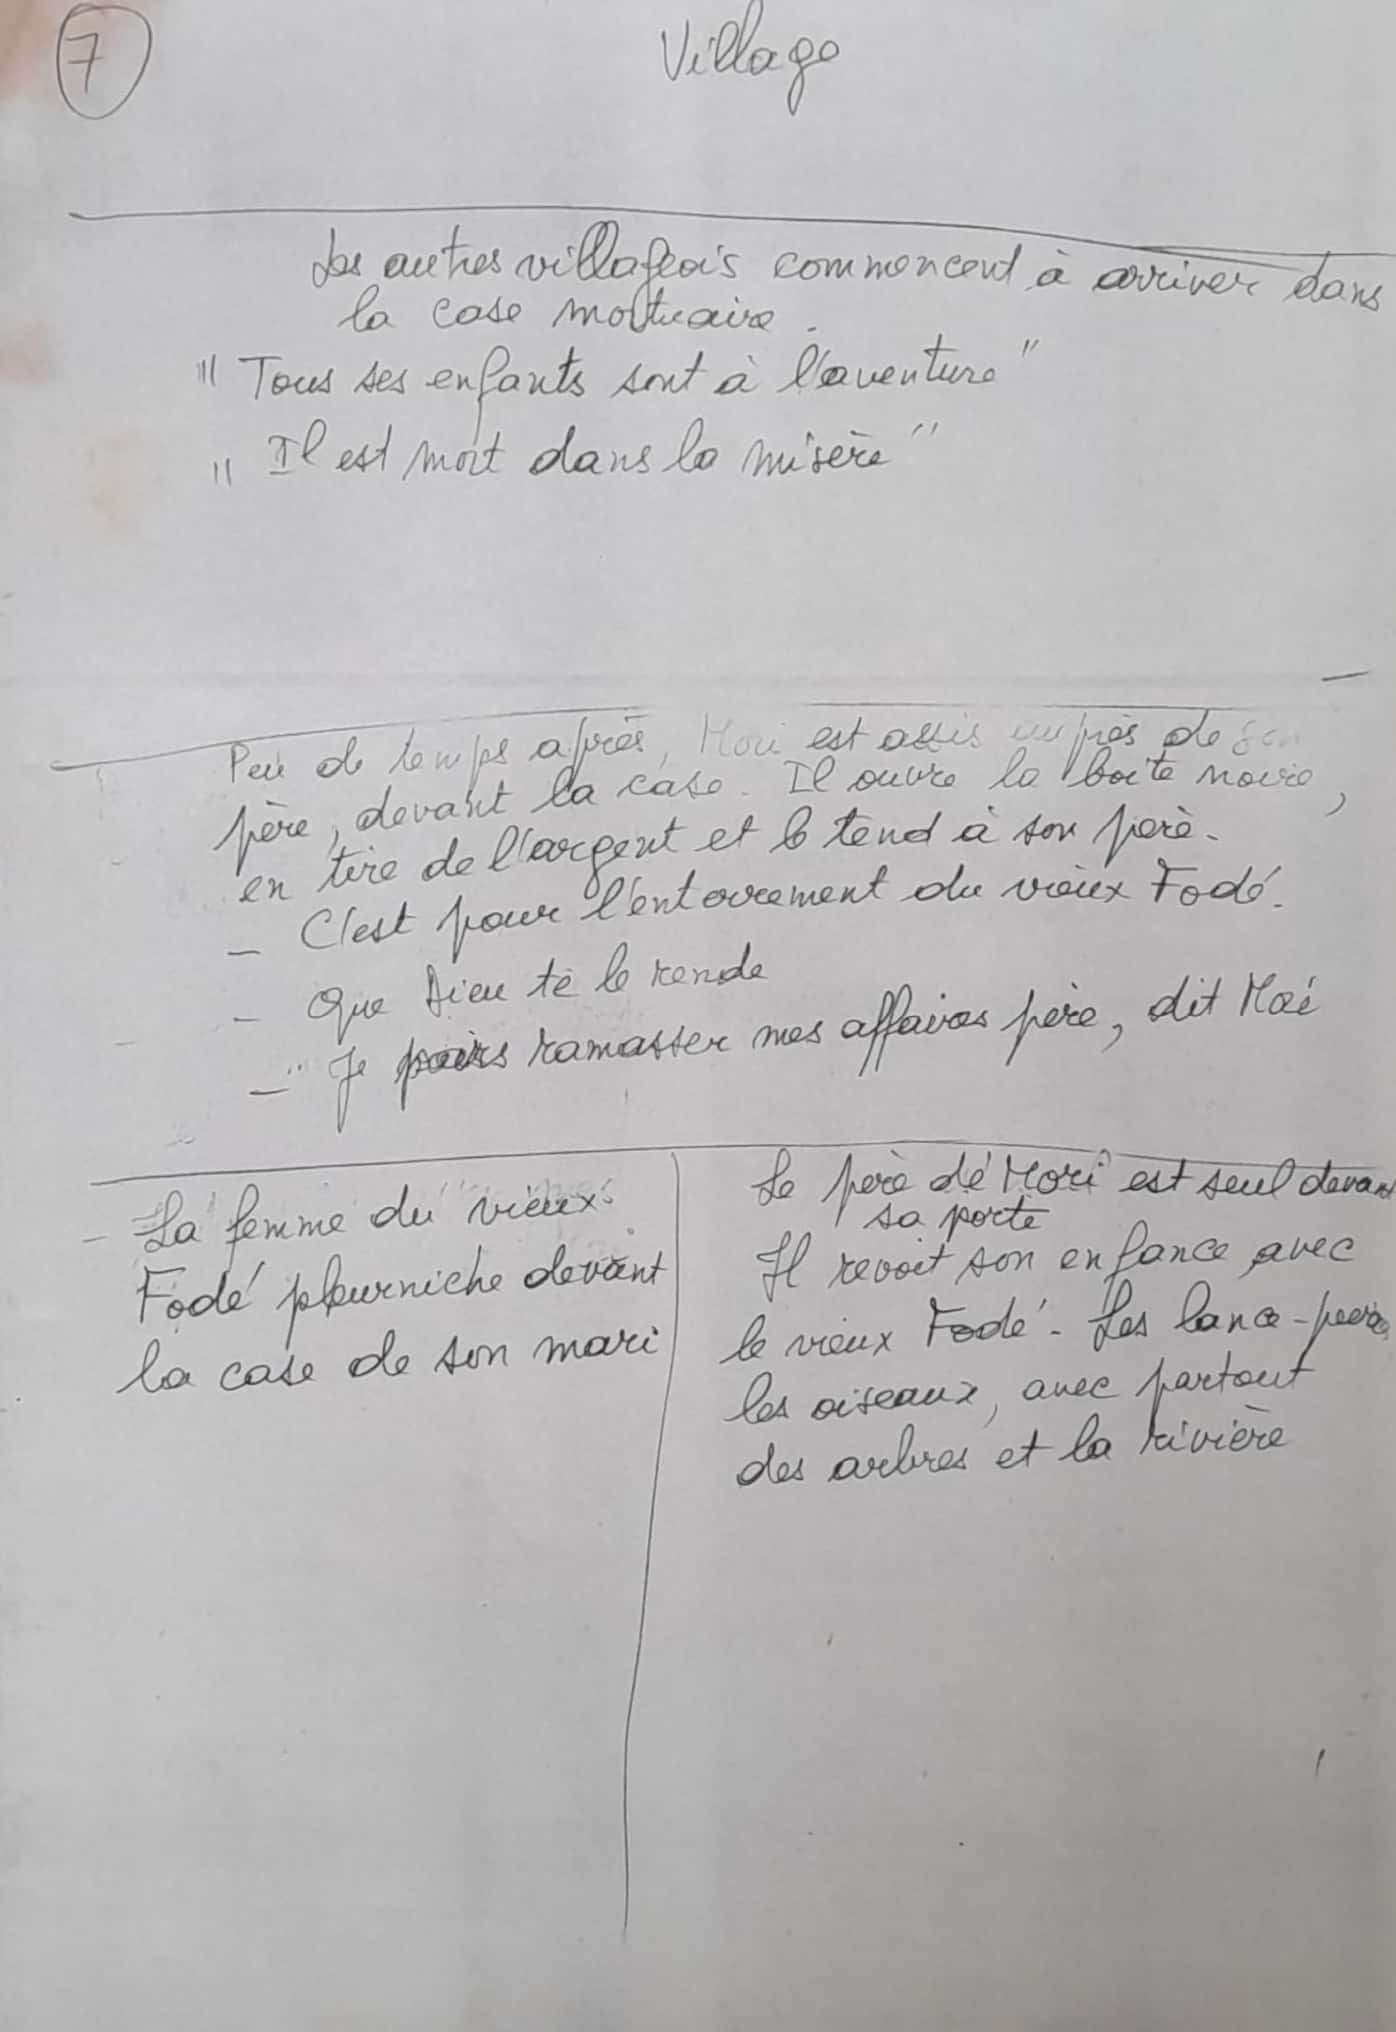 7
Village
Les autres villageois commencent à arriver dans
la case mortuaire.
"Tous ses enfants sont à l'aventure"
"Il est mort dans la misère"
Peu de temps après, Mori est assis auprès de son
père, devant la case. Il ouvre la boite noire,
en tire de l'argent et le tend à son père.
- C'est pour l'enterrement du vieux Fodé.
- Que Dieu te le rende
- "Je ramasser mes affaires père, dit
- La femme du vieux
Fodé pleurniche devant
la case de son mari
Le père de Mori est seul devant
sa porte
Il revoit son enfance avec
le vieux Fodé. Les lance-
les oiseaux, avec partout
des arbres et la rivière